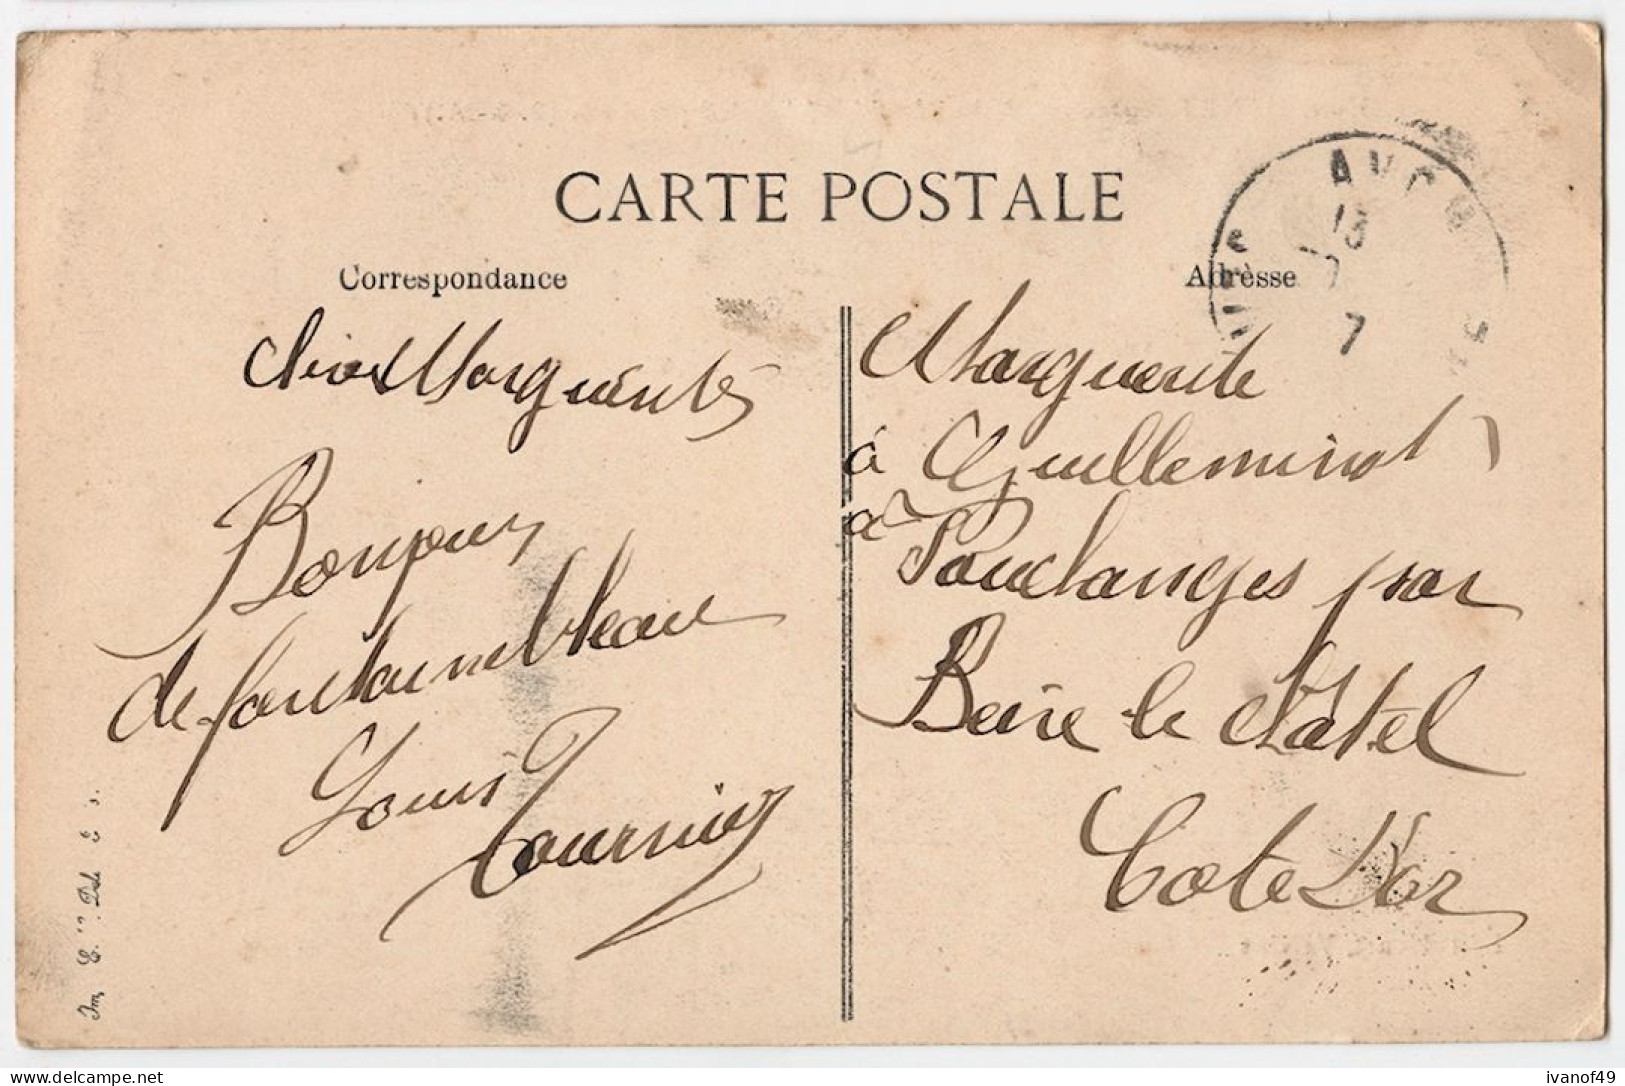 CARTE POSTALE
Correspondance
Adresse
Marguerite
Bonjour
de fontainebleau
Louis Tournier
Marguerite
à Guilleminot
à Pouclanges par
Beire le Châtel
Cote D'or
13
7
7
Delcampe.net
ivanof49